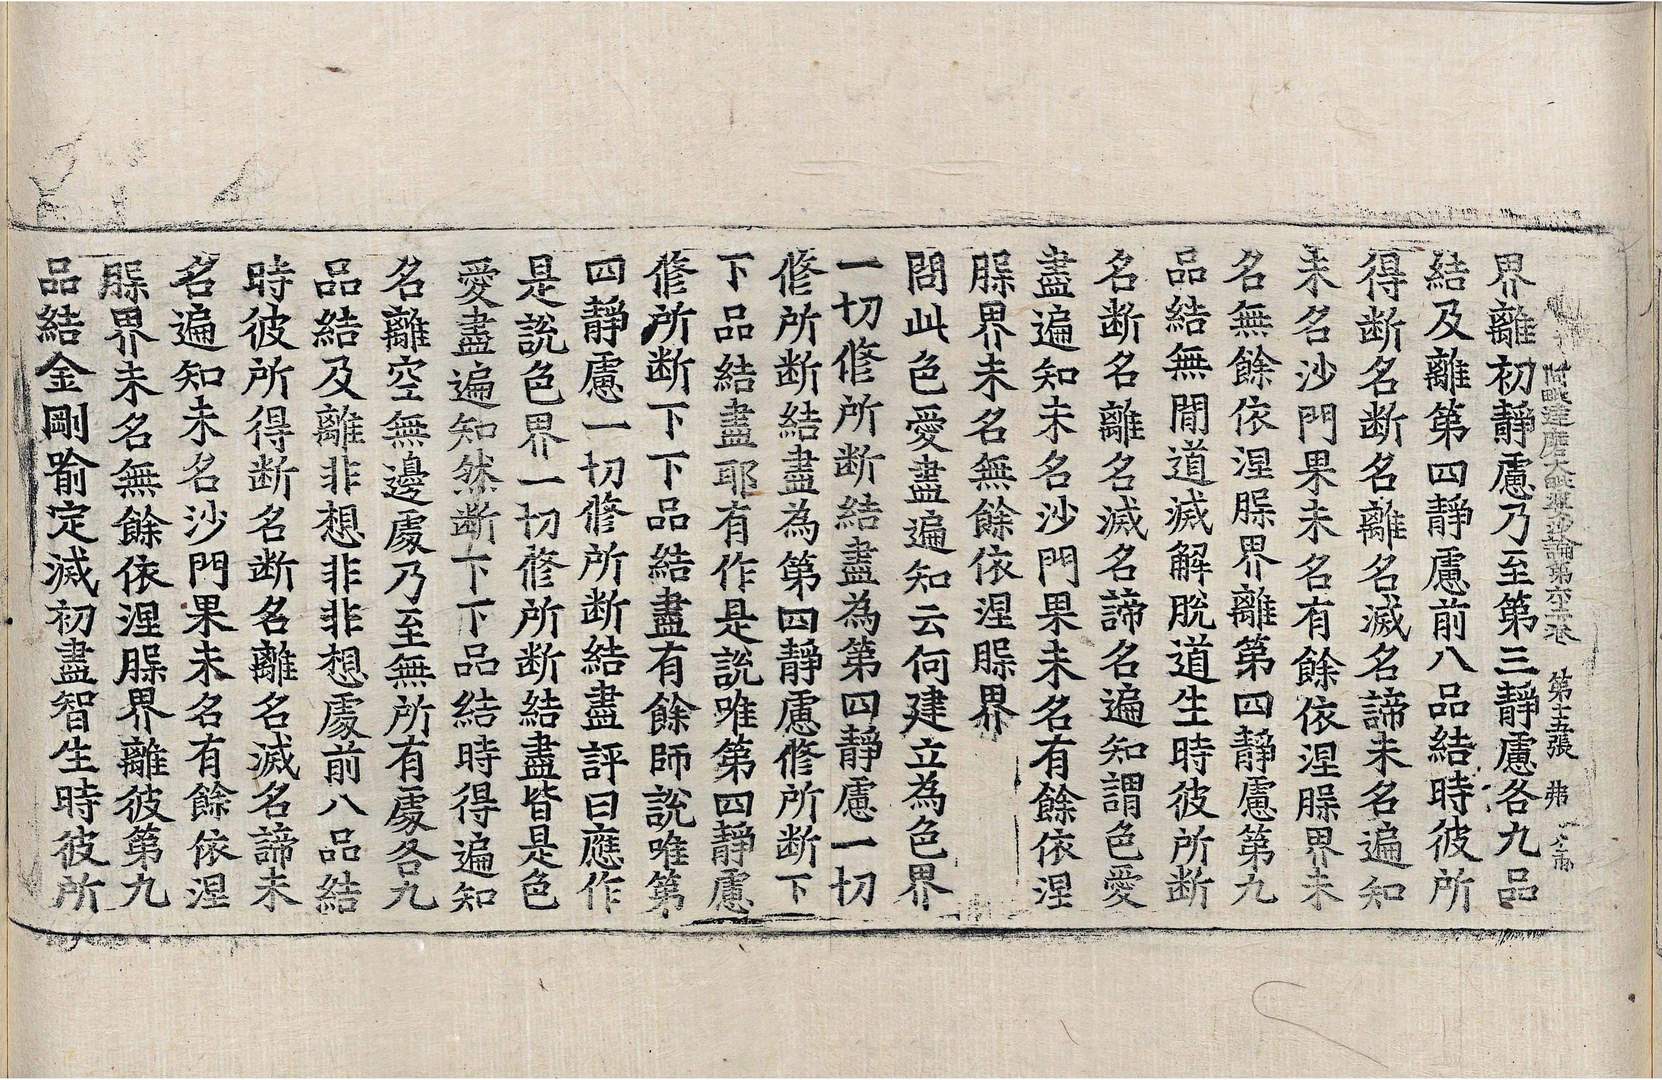 阿毗達磨大毗婆沙論第六十二卷 第十五張 弗
界離初靜慮乃至第三靜慮各九品
結及離第四靜慮前八品結時彼所
得断名断名離名滅名諦未名遍知
未名沙門果未名有餘依涅槃界未
名無餘依涅槃界離第四靜慮第九
品結無間道滅解脫道生時彼所断
名断名離名滅名諦名遍知謂色愛
盡遍知未名沙門果未名有餘依涅
槃界未名無餘依涅槃界
問此色愛盡遍知云何建立為色界
一切修所断結盡為第四靜慮一切
修所断結盡為第四靜慮修所断下
下品結盡耶有作是說唯第四靜慮
修所断下下品結盡有餘師說唯第
四靜慮一切修所断結盡評曰應作
是說色界一切修所断結盡皆是色
愛盡遍知然断下下品結時得遍知
名離空無邊處乃至無所有處各九
品結及離非想非非想處前八品結
時彼所得断名断名離名滅名諦未
名遍知未名沙門果未名有餘依涅
槃界未名無餘依涅槃界離彼第九
品結金剛喻定滅初盡智生時彼所